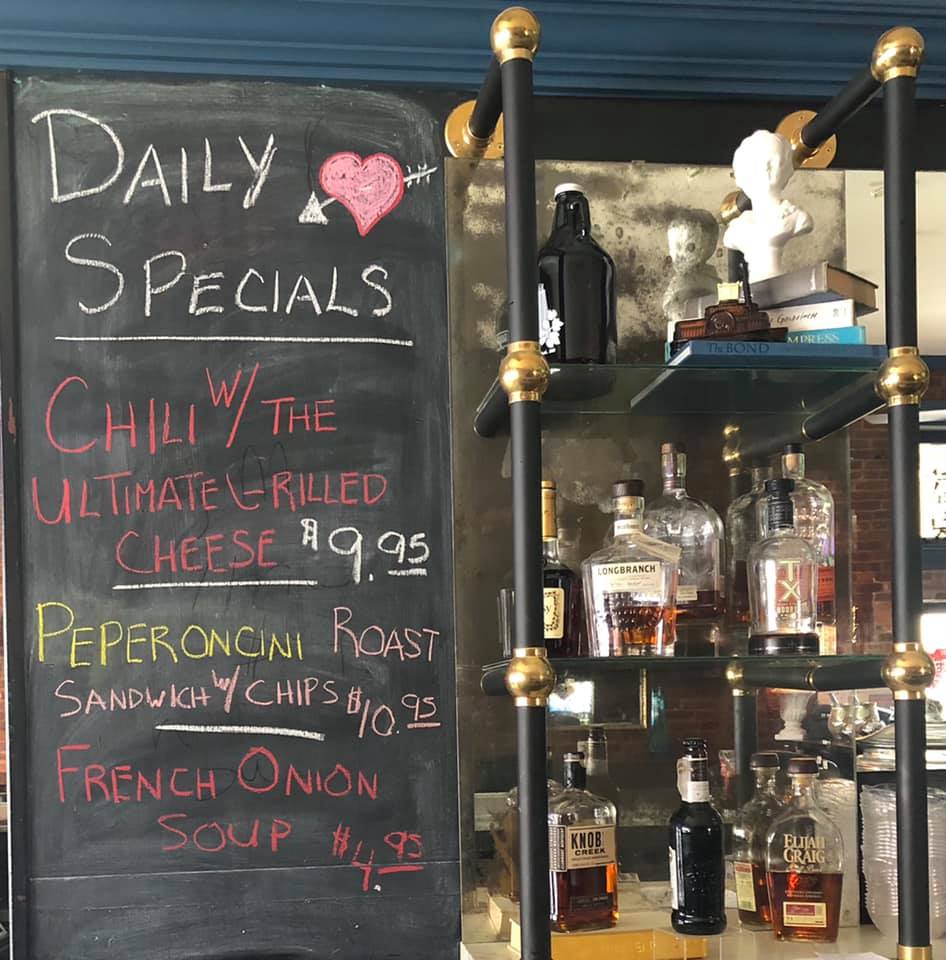 DAILY
SPECIALS
CHILI W/ THE
ULTIMATE GRILLED
CHEESE $9.95
PEPERONCINI ROAST
SANDWICH W/ CHIPS $10.95
FRENCH ONION
SOUP $4.95
The BOND
LONGBRANCH
TX
KNOB
CREEK
ELIJAH
CRAIG